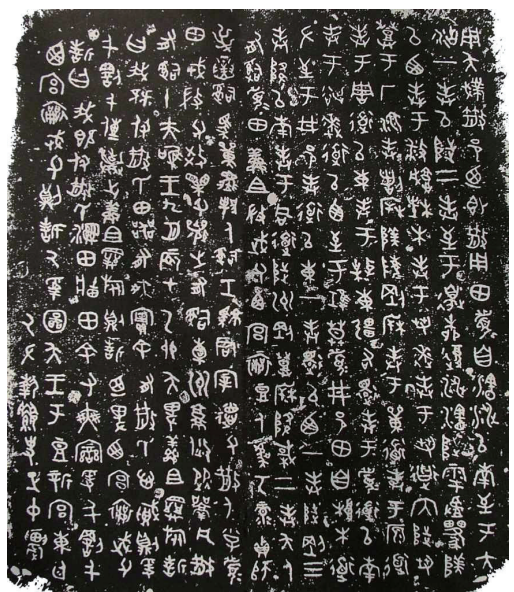 用夨撲散邑迺即散用田眉自瀗涉以南至于大
沽一封以陟二封至于邊柳復涉瀗陟雩
以西封于播城楮木封于芻逨封于芻道内陟芻
登于厂湶封剖柝陵剛柝封于道封于原道
封于周道以東封于東疆右還封于眉道以南
封于逨道以西至于莫眉井邑田自根木道
左至于井邑封道以東一封還以西一封陟剛三
封降以南封于同道陟州剛登柝降棫二封夨人
有司眉田鮮且微武父西宮襄豆人虞丂彔貞師
氏右眚小門人繇原人虞艿淮司工虎孛龠豐父
人有司刑丂凡十又五夫正眉夨舍散田司土
逆寅司馬單人司工君宰德父散人小子眉
田戎微父效父襄之有司橐州就從凡散
有司十夫唯王九月辰在乙卯夨俾鮮且旅誓
曰我既付散氏田器有爽實余有散氏心賊則爰
千罰千傳棄之鮮且旅則誓迺俾西宮襄武父
誓曰我既付散氏濕田牆田余有爽變爰千罰千
西宮襄武父則誓厥受圖夨王于豆新宮東廷
厥左執要史正中農